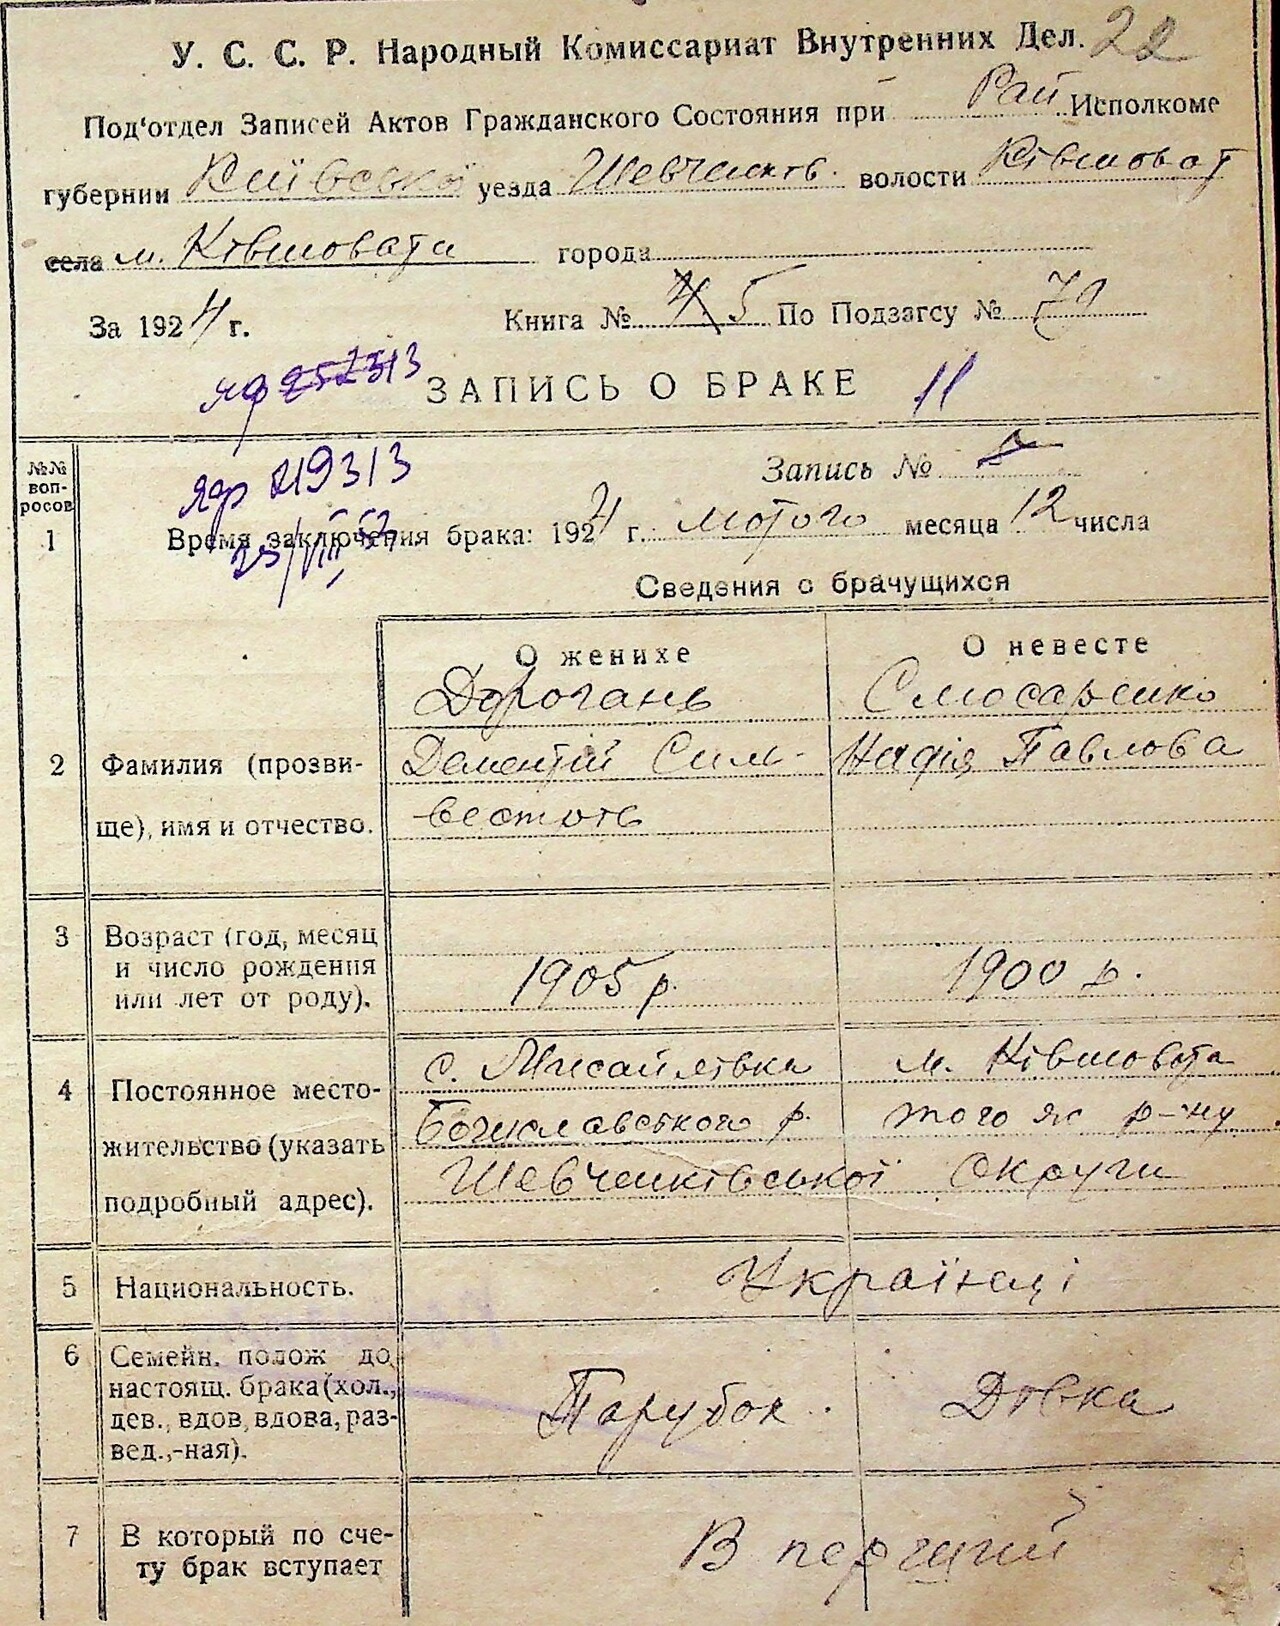 У. С. С. Р. Народный Комиссариат Внутренних Дел. 22
Под‘отдел Записей Актов Гражданского Состояния при Рай Исполкоме
губернии Київської уезда Шевченків. волости Ківшоват
села м. Ківшовати города
За 1924 г. Книга № 4 5 По Подзагсу № 79
яф 252313 ЗАПИСЬ О БРАКЕ 11
№№ вопросов
яф 219313 Запись №
1 Время заключения брака: 1924 г. лютого месяца 12 числа
25/VIII 52
Сведения о брачущихся
О женихе О невесте
Дорогань Слюсаренко
2 Фамилия (прозви- Дементій Сил- Надія Павлова
ще), имя и отчество. вестрів
3 Возраст (год, месяц
и число рождения 1905 р. 1900 р.
или лет от роду).
с. Мисайлівка м. Ківшовата
4 Постоянное место- Богуславського р. того ж р-ну
жительство (указать Шевченківської Округи
подробный адрес).
5 Национальность. Українці
6 Семейн. полож до
настоящ. брака (хол., Парубок. Дівка
дев., вдов, вдова, раз-
вед.,-ная).
7 В который по сче- В перший
ту брак вступает